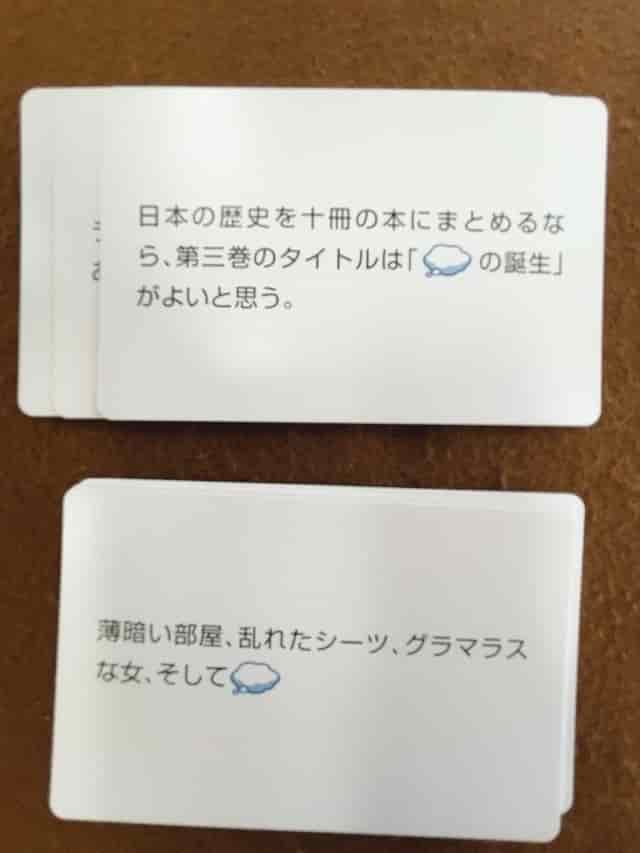 日本の歴史を十冊の本にまとめるな
ら、第三巻のタイトルは「 の誕生」
がよいと思う。
薄暗い部屋、乱れたシーツ、グラマラス
な女、そして